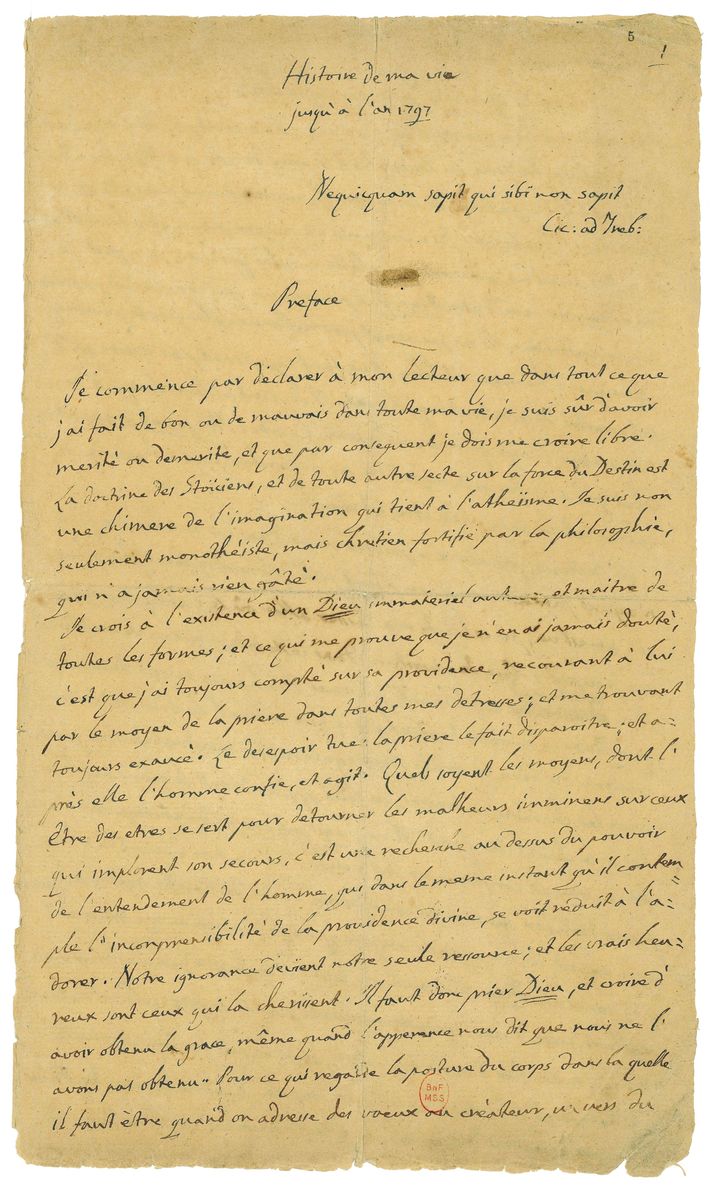 5
1
Histoire de ma vie
jusqu'à l'an 1797
Nequicquam sapit qui sibi non sapit
Cic: ad Treb:
Preface
Je commence par déclarer à mon lecteur que dans tout ce que
j'ai fait de bon ou de mauvais dans toute ma vie, je suis sûr d'avoir
merité ou demerite, et que par consequent je dois me croire libre.
La doctrine des Stoïciens, et de toute autre secte sur la force du Destin est
une chimere de l'imagination qui tient à l'atheïsme. Je suis non
seulement monothéiste, mais chretien fortifié par la philosophie,
qui n'a jamais rien gâté.
Je crois à l'existence d'un Dieu immateriel, et maitre de
toutes les formes; et ce qui me prouve que je n'en ai jamais douté,
c'est que j'ai toujours compté sur sa providence, recourant à lui
par le moyen de la priere dans toutes mes detresses; et me trouvant
toujours exaucé. Le desespoir tue: la priere le fait disparoitre; et a=
près elle l'homme confie, et agit. Quels soyent les moyens, dont l'
Etre des etres se sert pour detourner les malheurs imminens sur ceux
qui implorent son secours, c'est une recherche au dessus du pouvoir
de l'entendement de l'homme, qui dans le meme instant qu'il contem=
ple l'incomprensibilité de la providence divine, se voit réduit à l'a=
dorer. Notre ignorance devient notre seule ressource; et les vrais heu=
reux sont ceux qui la cherissent. Il faut donc prier Dieu, et croire d'
avoir obtenu la grace, même quand l'apperence nous dit que nous ne l'
avons pas obtenu. Pour ce qui regarde la posture du corps dans la quelle
il faut être quand on adresse des voeux au créateur, un vers du
BnF
MSS